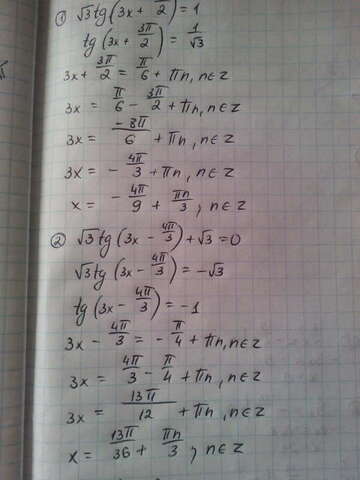 ① √3 tg(3x + π/2) = 1
tg(3x + 3π/2) = 1/√3
3x + 3π/2 = π/6 + πn, n∈z
3x = π/6 - 3π/2 + πn, n∈z
3x = -8π/6 + πn, n∈z
3x = - 4π/3 + πn, n∈z
x = - 4π/9 + πn/3; n∈z
② √3 tg(3x - 4π/3) + √3 = 0
√3 tg(3x - 4π/3) = -√3
tg(3x - 4π/3) = -1
3x - 4π/3 = - π/4 + πn, n∈z
3x = 4π/3 - π/4 + πn, n∈z
3x = 13π/12 + πn, n∈z
x = 13π/36 + πn/3; n∈z